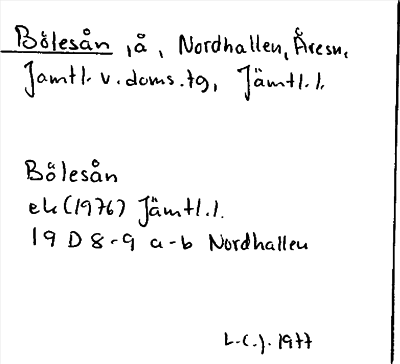 Bölesån, å, Nordhallen, Åresn,
Jämtl. v. doms. tg, Jämtl. l.
Bölesån
ek (1976) Jämtl. l.
19 D 8-9 a-b Nordhallen
L.C.J. 1977